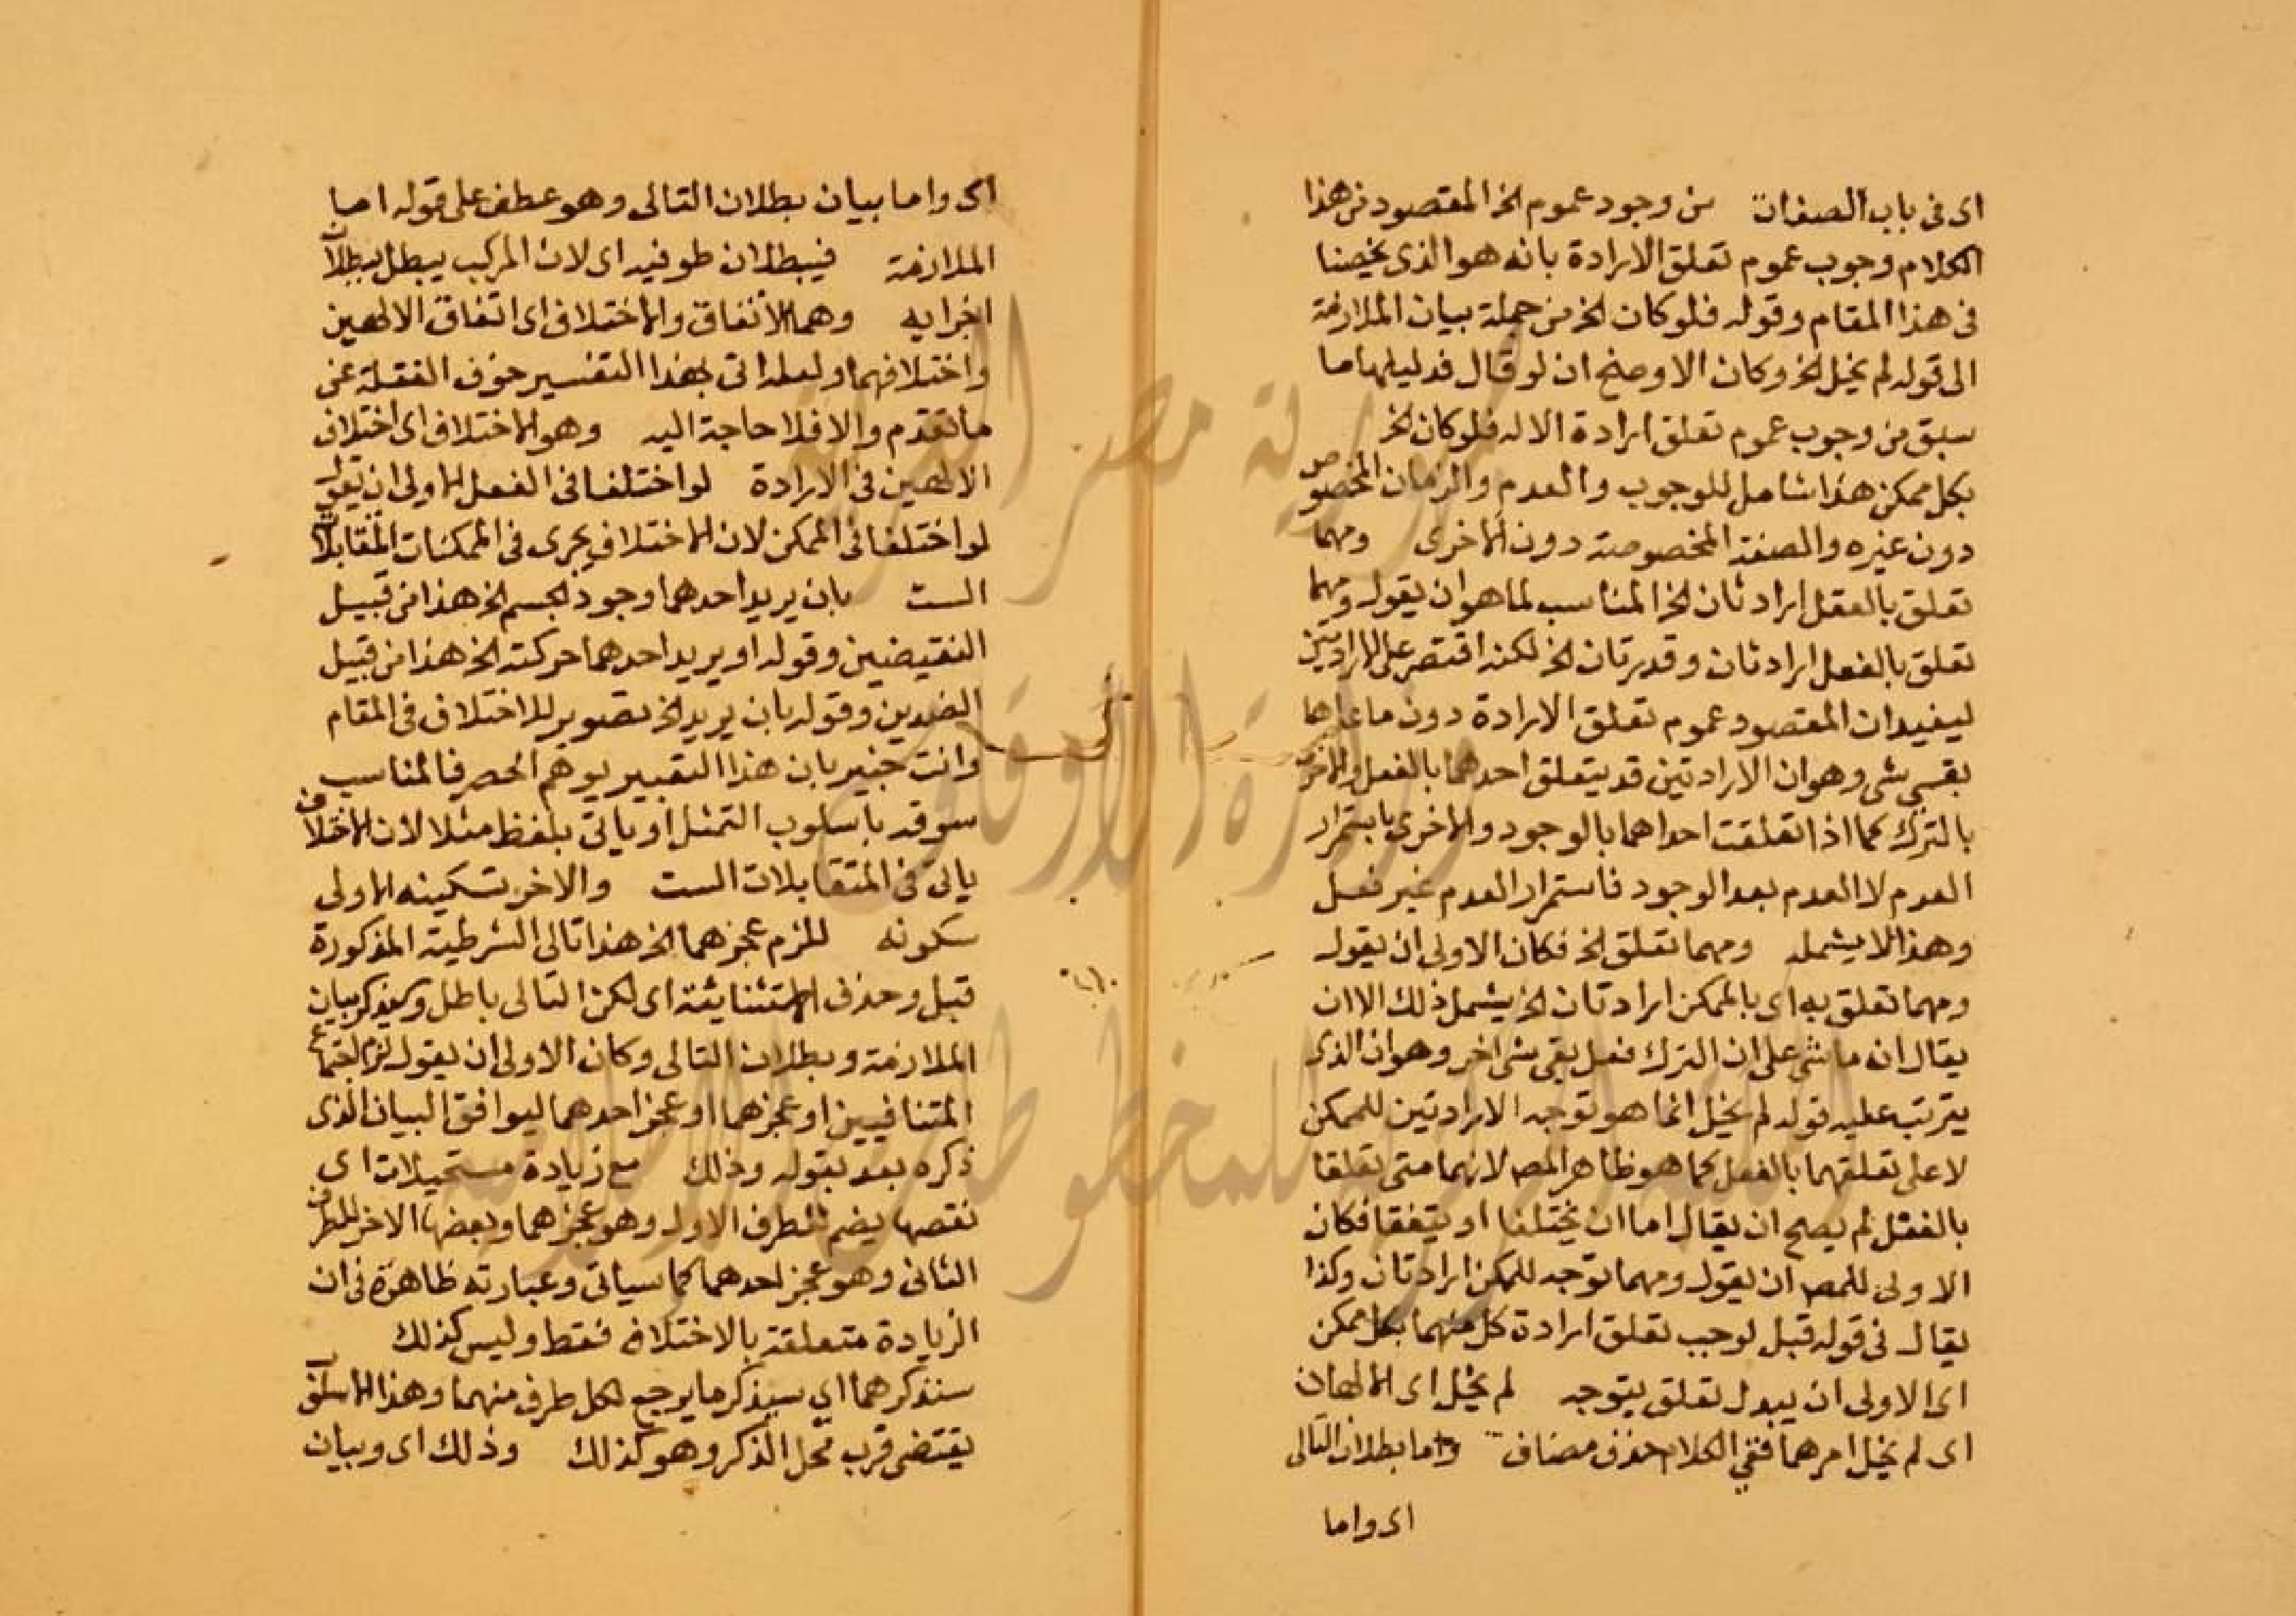 اى فى باب الصفات من وجود عموم الخ المقصود من هذا
الكلام وجوب عموم تعلق الارادة بانه هو الذى يخصنا
فى هذا المقام وقوله فلو كان الخ من جملة بيان الملازمة
الى قوله لم يخل الخ وكان الاوضح ان لو قال فدليلها ما
سبق من وجوب عموم تعلق ارادة الاله فلو كان الخ
بكل ممكن هذا شامل للوجوب والعدم والزمان المخصوص
دون غيره والصفة المخصوصة دون الاخرى ومهما
تعلق بالفعل ارادتان الخ المناسب لما هو ان يقول ومهما
تعلق بالفعل ارادتان وقدرتان الخ لكنه اقتصر على الارادتين
ليفيد ان المقصود عموم تعلق الارادة دون ما عداها
بقى شى وهو ان الارادتين قد يتعلق احدهما بالفعل والاخرى
بالترك كما اذا تعلقت احداهما بالوجود والاخرى باستمرار
العدم لا العدم بعد الوجود فاستمرار العدم غير فعل
وهذا لا يشمله ومهما تعلق الخ فكان الاولى ان يقول
ومهما تعلق به اى بالممكن ارادتان الخ يشمل ذلك الا ان
يقال انه ماشى على ان الترك فعل بقى شى اخر وهو ان الذى
يترتب عليه قوله لم يخل انما هو توجه الارادتين للممكن
لا على تعلقهما بالفعل كما هو ظاهر المص لانهما متى تعلقا
بالفعل لم يصح ان يقال اما ان يختلفا او يتفقا فكان
الاولى للمص ان يقول ومهما توجه للمكن ارادتان وكذا
يقال فى قوله قبل لوجب تعلق ارادة كل منهما بكل ممكن
اى الاولى ان يبدل تعلق بتوجه لم يخل اى الالهان
اى لم يخل امرهما ففى الكلام حذف مضاف واما بطلان التالى
اى واما
اى واما بيان بطلان التالى وهو عطف على قوله اما
الملازمة فيبطلان طرفيه اى لان المركب يبطل ببطلان
اجزايه وهما الاتفاق والاختلاف اى اتفاق الالهين
واختلافهما ولعله اتى بهذا التفسير خوف الغفلة عن
ما تقدم والا فلا حاجة اليه وهو الاختلاف اى اختلاف
الالهين فى الارادة لو اختلفا فى الفعل الاولى ان يقول
لو اختلفا فى الممكن لان الاختلاف يجرى فى الممكنات المتقابلات
الست بان يريد احدهما وجود الجسم الخ هذا من قبيل
النقيضين وقوله او يريد احدهما حركته الخ هذا من قبيل
الضدين وقوله بان يريد الخ تصوير للاختلاف فى المقام
وانت خبير بان هذا التعبير يوهم الحصر فالمناسب
سوقه باسلوب التمثل او ياتى بلفظ مثلا لان الاختلاف
ياتى فى المتقابلات الست والاخر تسكينه الاولى
سكونه للزم عجزهما الخ هذا تالى الشرطية المذكورة
قبل وحذف الاستثنايئة اى لكن التالى باطل وسيذكر بيان
الملازمة وبطلان التالى وكان الاولى ان يقول لزم اجتماع
المتنافيين او عجزهما او عجز احدهما ليوافق البيان الذى
ذكره بعد بقوله وذلك مع زيادة مستحيلات اى
نقصها يضم للطرف الاول وهو عجزهما وبعضها الاخر للطرف
الثانى وهو عجز احدهما كما سياتى وعبارته ظاهرة فى ان
الزيادة متعلقة بالاختلاف فقط وليس كذلك
سنذكرهما اى سيذكر ما يرجع لكل طرف منهما وهذا الاسلوب
يقتضى قرب محل الذكر وهو كذلك وذلك اى وبيان